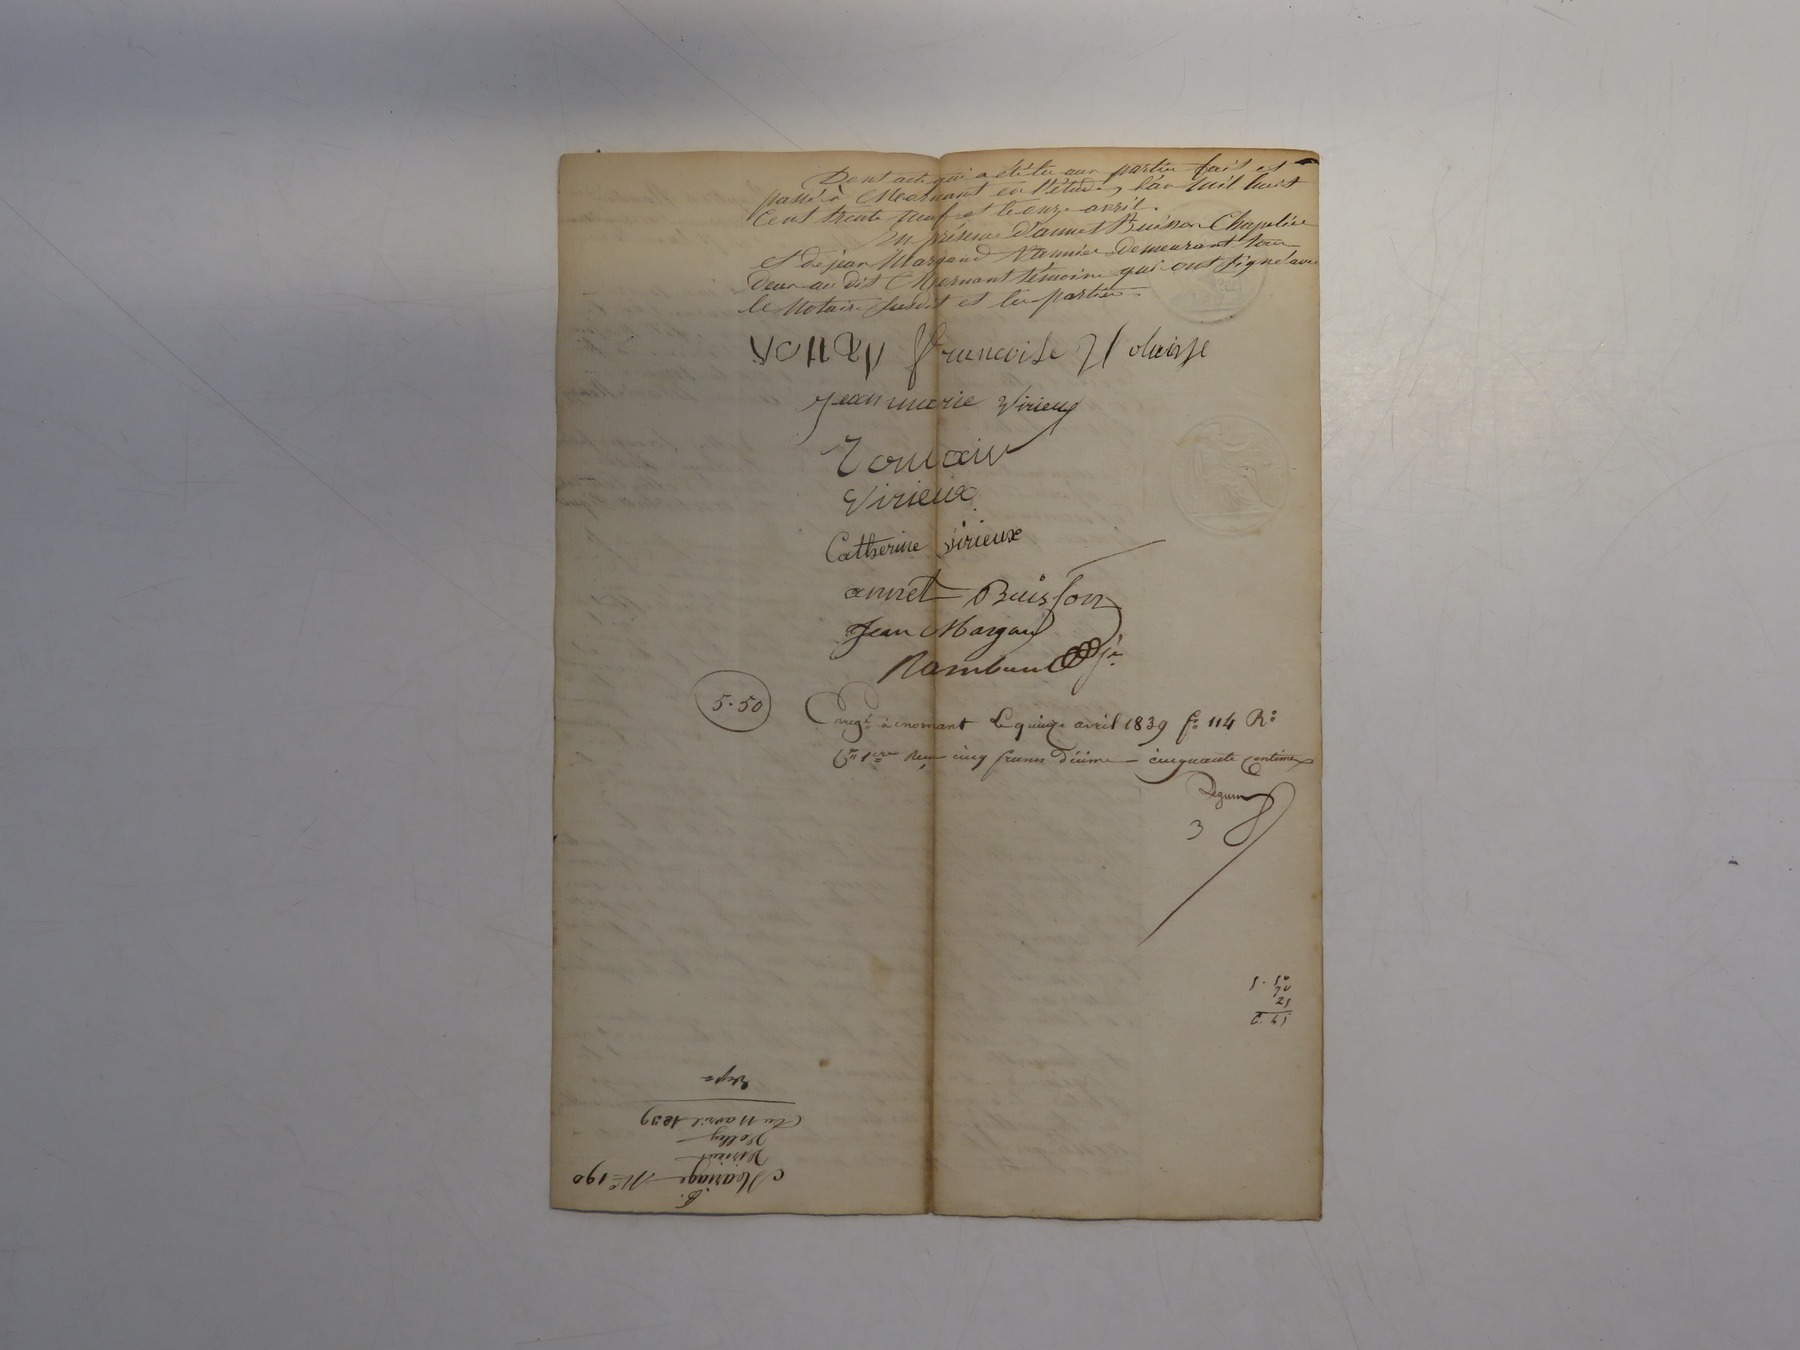 Dont acte qui a été lu aux parties fait et
passé à Mornant en l'étude, l'an mil huit
Cent trente neuf et le onze avril.
En présence d'annet Buisson Chapelier
et de jean Margand Vannier demeurant tous
deux au dit Mornant témoins qui ont signé avec
le Notaire susdit et les parties.
francoise
jean marie Virieux
Virieux
Catherine virieux
annet Buisson
Jean Margand
5-50
Enregé à mornant Le quinze avril 1839 fo 114 Ro
Ce 1ere Reçu cinq francs dixime cinquante Centimes
3
5. 50
70
25
6. 45
Mariage No 190
Virieux
Du 11 avril 1839
Expo